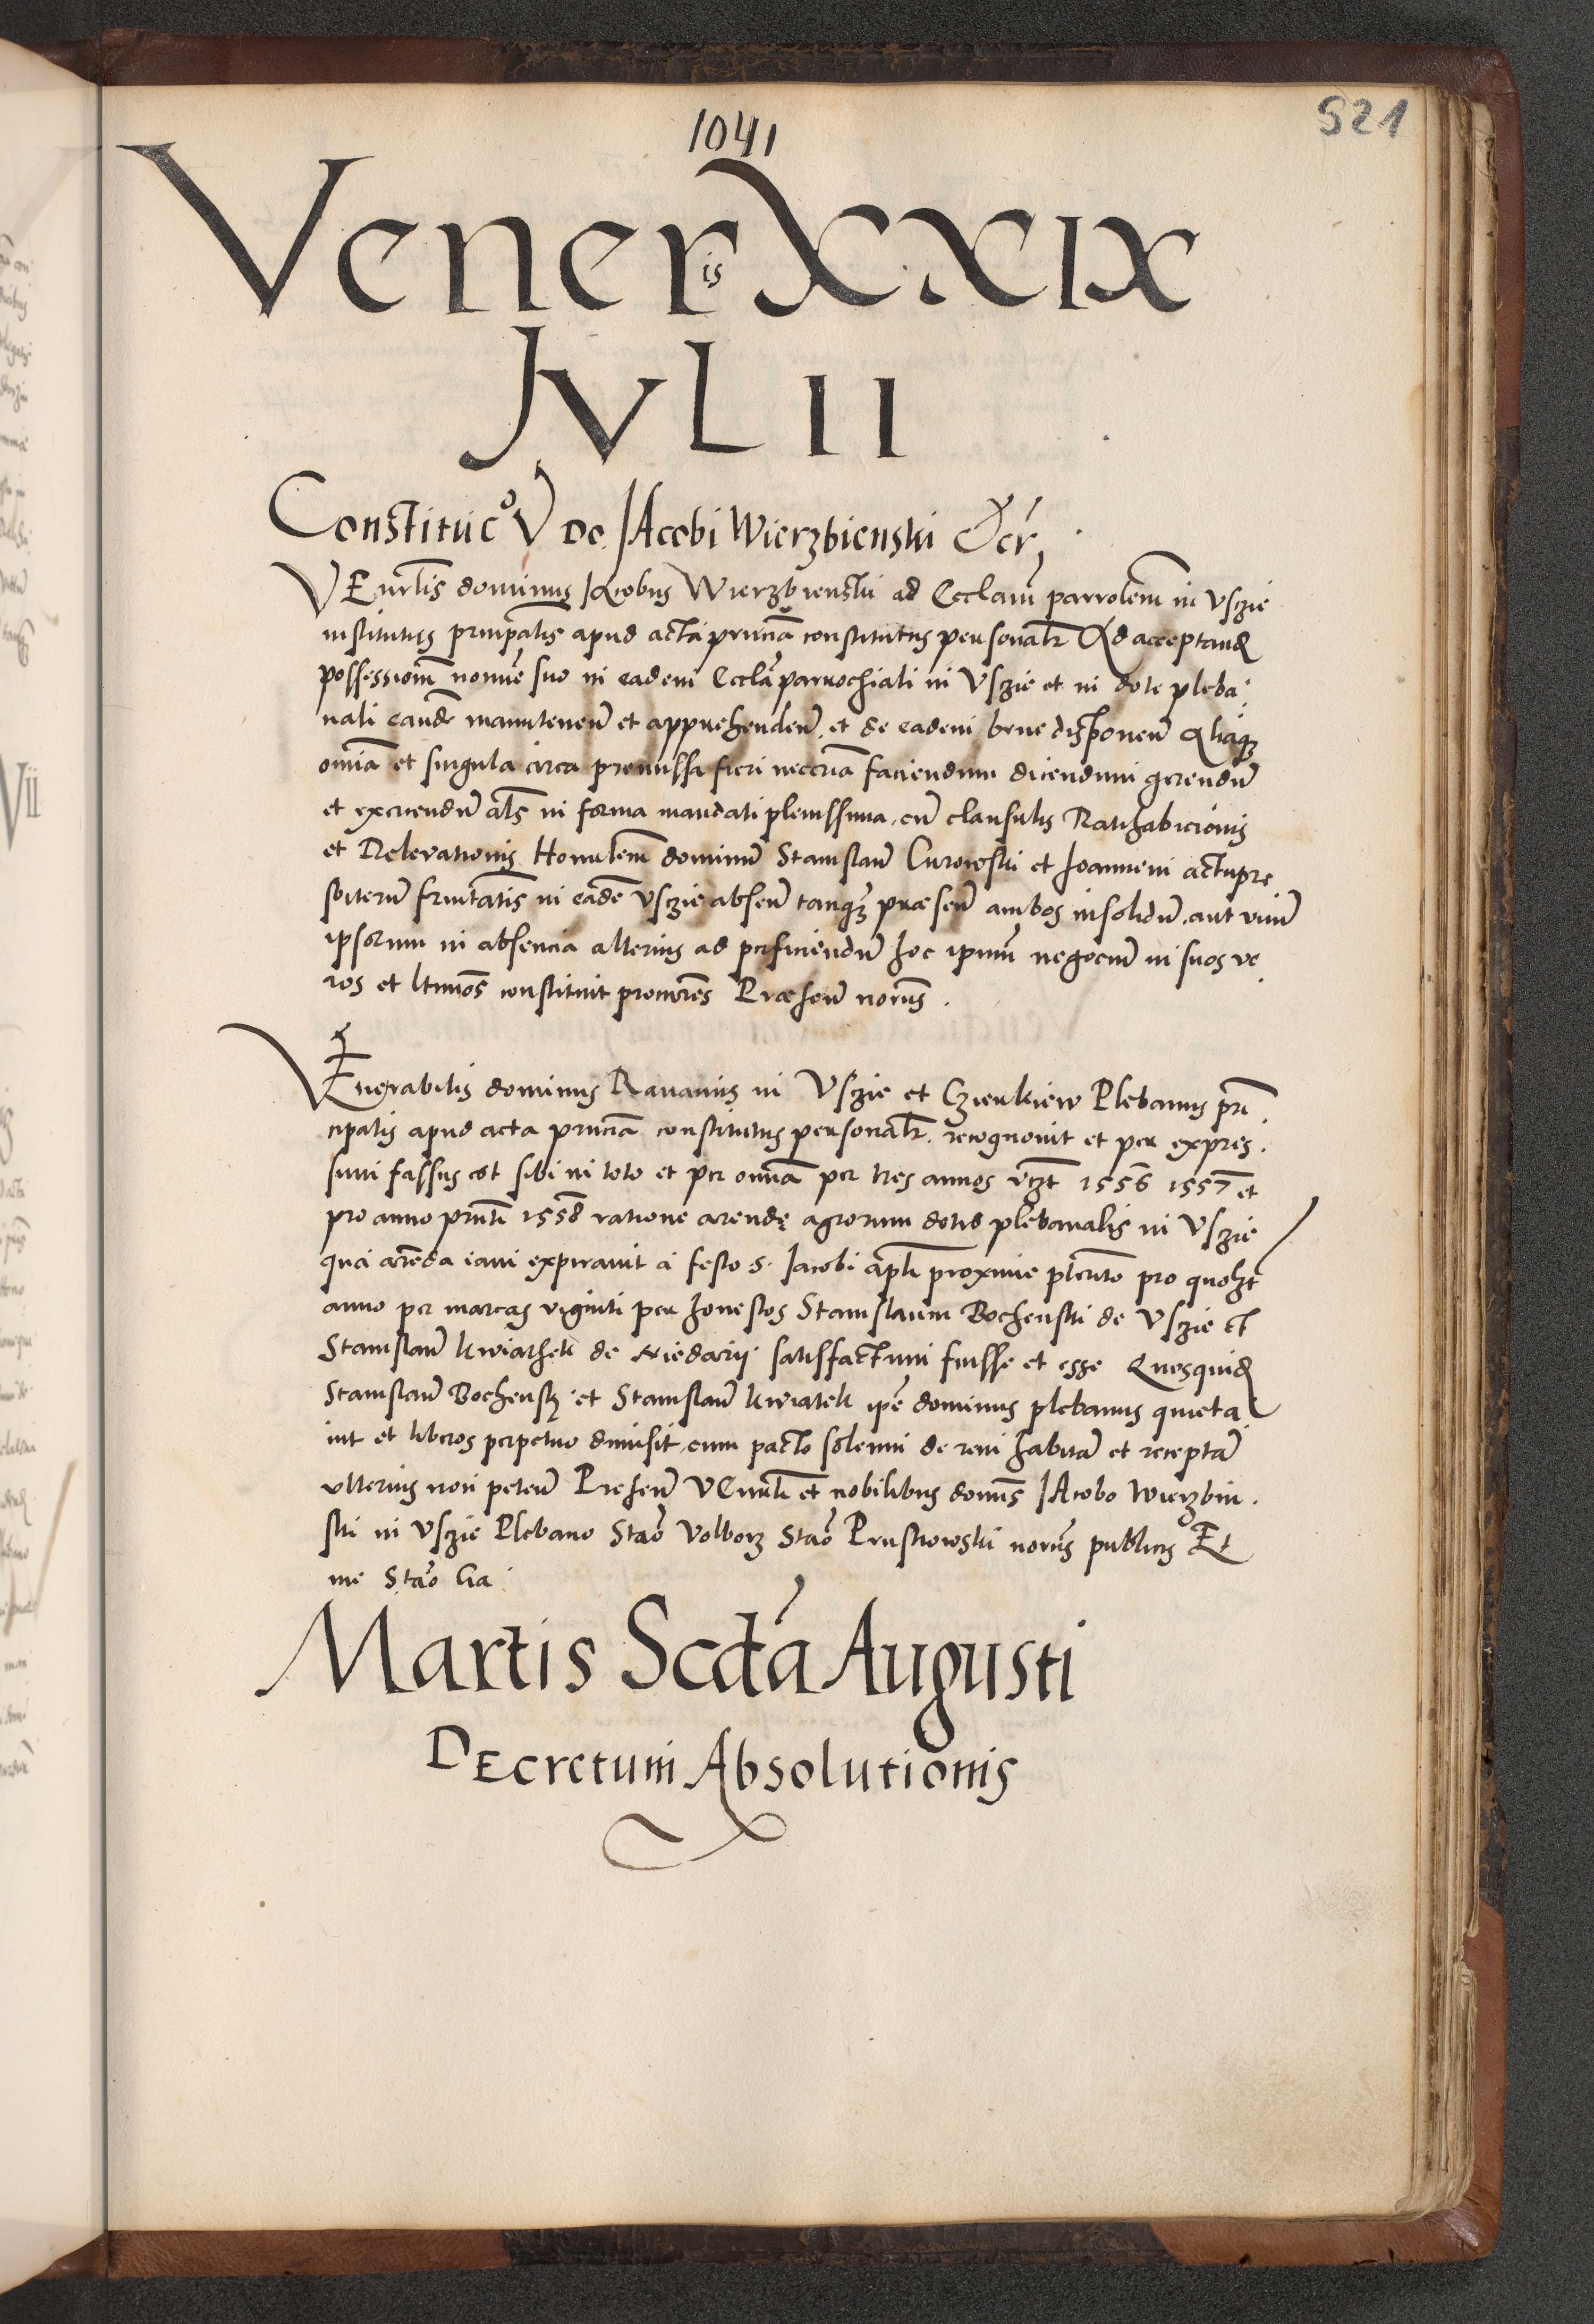 1041
521
Veneris XXIX
JVLII
Constituco V Do Jacobi Wierzbienski &cr
VEnrlis dominus Jacobus Wierzbienski ad Ecclam parrolem in Vszie
institutus principalis apud acta pruncia constitutus personalr Ad acceptand
possessionem nomine suo in eadem Eccla parrochiali in Vszie et in dote pleba
nali eande manutenen et apprehenden et de eadem bene disponen Aliaq
omnia et singula circa premissa fieri neccria faciendum dicendum gerendum
et exercendum als in forma mandati plenissima cum clausulis Ratihabicionis
et Relevationis Honnlem dominum Stanislaum Curowski et Joannem actu pre
sbiterum fruntatis in eade Vszie absen tanqz præsen ambos insolidum aut unum
ipsorum in absencia alterius ad perficiendum hoc ipsum negocium in suos ve
ros et ltimos constituit procures Præsen norus
VEnerabilis dominus Rauanus in Vszie et Czienkiew Plebanus prin
cipalis apud acta pruncia constitutus personalr recognovit et per expres
sum fassus est sibi in toto et per omnia per tres annos vzt 1556 1557 et
pro anno prnti 1558 ratione arendę agrorum dotis plebanalis in Vszie
qua arenda iam expiravit a festo S. Jacobi apli proxime pterito pro quolzt
anno per marcas viginti per honestos Stanislaum Bochenski de Vszie et
Stanislaum Kwiathek de Niedarij satisfactum fuisse et esse Quosquid
Stanislaum Bochensky et Stanislaum Kwiatek ipse dominus plebanus quieta
vit et liberos perpetuo dimisit cum pacto solenni de rem habita et recepta
ulterius non peten Presen VEnnli et nobilibus domis Jacobo Wierzbin
ski in Vszie Plebano Stao Volborz Stao Pruskowski norus publicis Et
me Stao Ga
Martis Scda Augusti
DEcretum Absolutionis